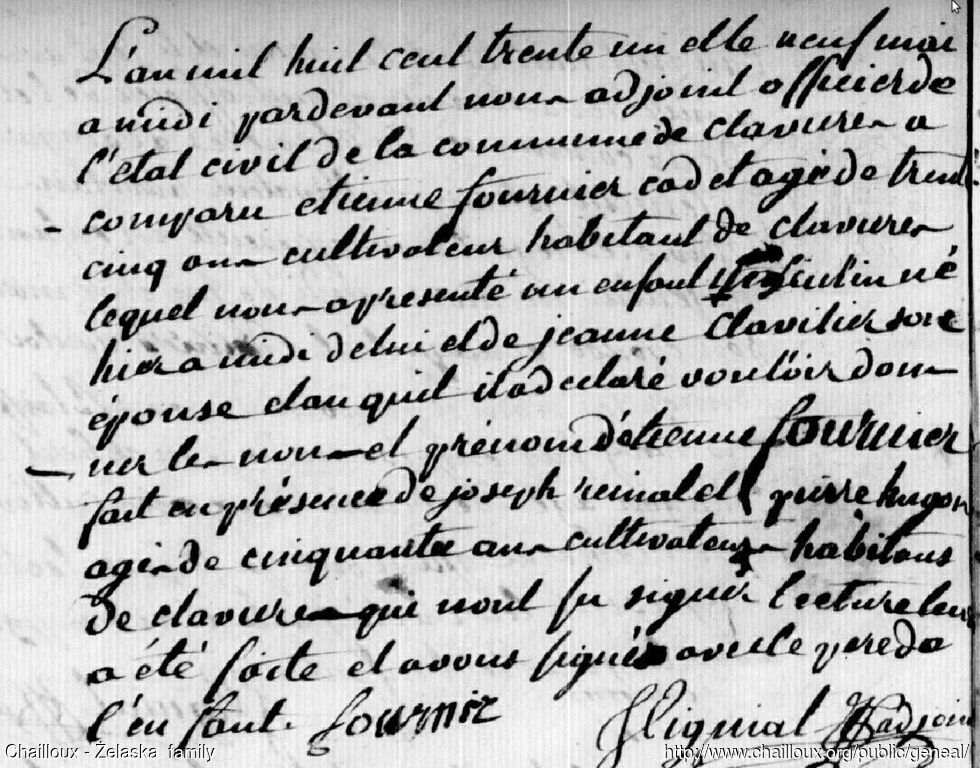 L'an mil huit cent trente un et le neuf mai
a midi pardevant nous adjoint officier de
l'etat civil de la commune de clavieres a
comparu etienne fournier cadet agé de trente
cinq ans cultivateur habitant de clavieres
lequel nous a presenté un enfant masculin né
hier a midi de lui et de jeanne Clavilier son
épouse et auquel il a declaré vouloir don
ner les nons et prénom d'étienne fournier
fait en présence de joseph reinal et pierre hugon
agés de cinquante ans cultivateurs habitans
de clavieres qui nont su signer lecture leur
a été faite et avons signés avec le pere de
l'en fant. fournir
adjoint
Chailloux - Želaska family
http://www.chailloux.org/public/geneal/